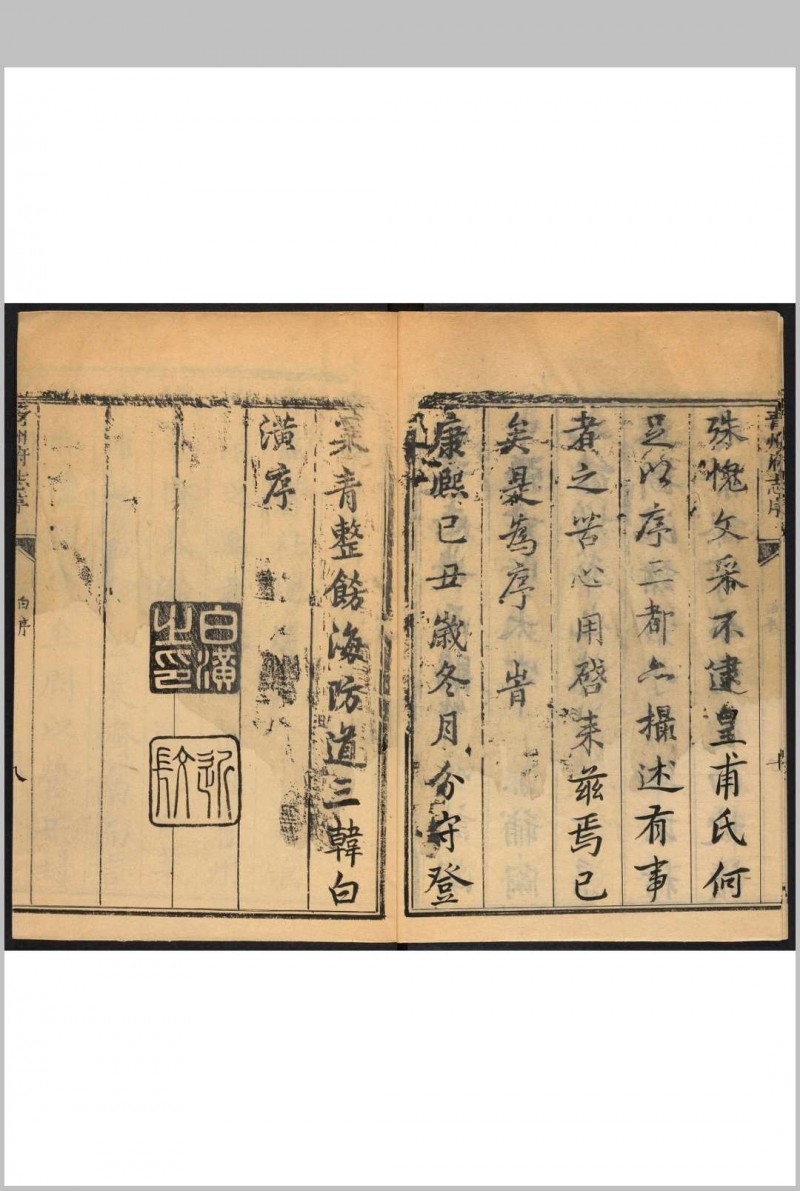 青州府志序
殊愧文采不逮皇甫氏何
足以序三都亦撮述有事
者之苦心用啓来兹焉已
矣是為序 旹
康熙己丑歳冬月分守登
莱青整飭海防道三韓白
潢序
白潢之印
青州府志序
白序
八